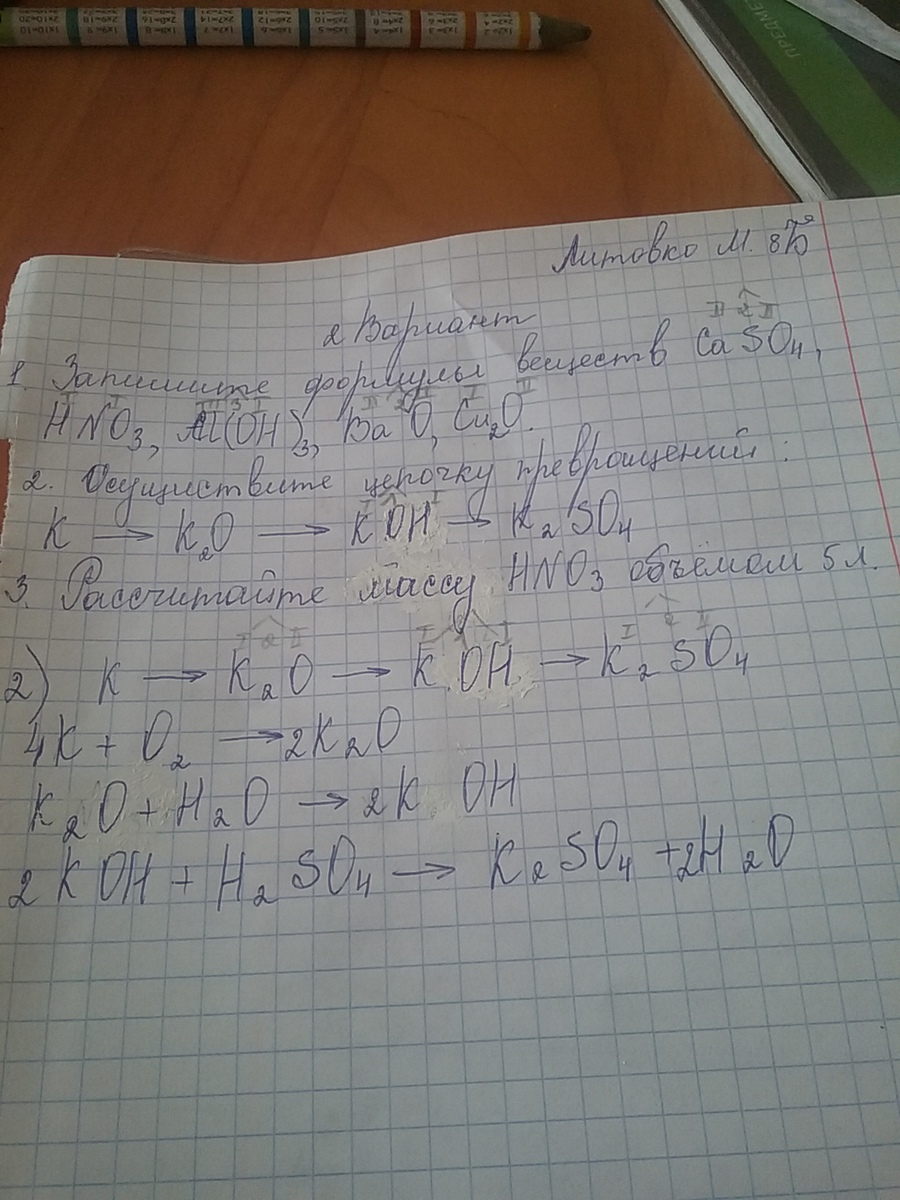 ПРЕДМЕ
Литовко М. 8"Б"
2 Вариант
1. Запишите формулы веществ CaSO4,
HNO3, Al(OH)3, BaO, Cu2O.
2. Осуществите цепочку превращений:
K → K2O → KOH → K2SO4
3. Рассчитайте массу HNO3 объёмом 5 л.
2) K → K2O → KOH → K2SO4
4K + O2 → 2K2O
K2O + H2O → 2K OH
2 KOH + H2SO4 → K2SO4 + 2H2O